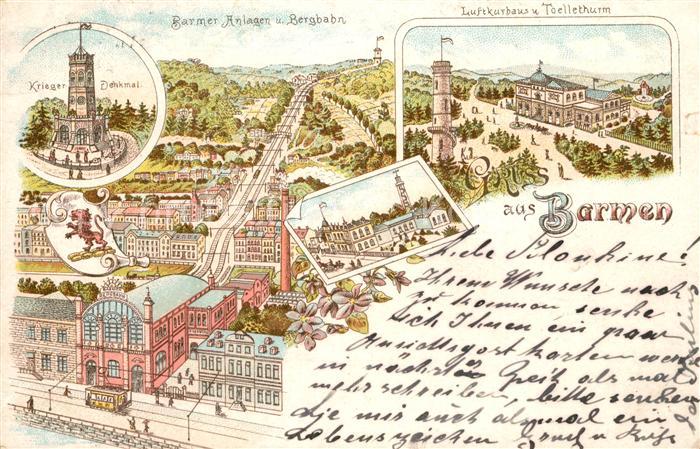 Barmer Anlagen u. Bergbahn
Luftkurhaus u Toellethurm
Krieger Denkmal.
Gruss
aus Barmen
Liebe
Ihrem Wunsche nach
zu kommen sende
ich Ihnen ein paar
Ansichtspostkarten werde
in nächster Zeit als mal
mehr schreiben, bitte senden
Sie mir auch als mal ein
Lebenszeichen Gruß u Kuß